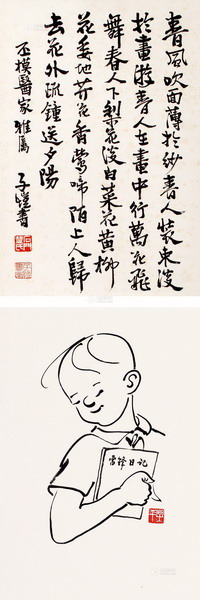 春風吹面薄於紗春人裝束淡
於畫遊春人在畫中行萬花飛
舞春人下梨花淡白菜花黃柳
花委地芥花香鶯啼陌上人歸
去花外疏鐘送夕陽
丕模醫家雅屬
子愷書
雷锋日记